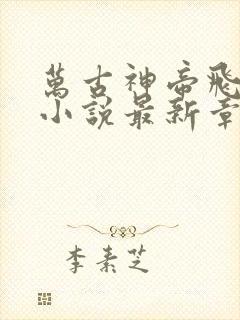 萬古神帝飛
小說最新章
李素芝